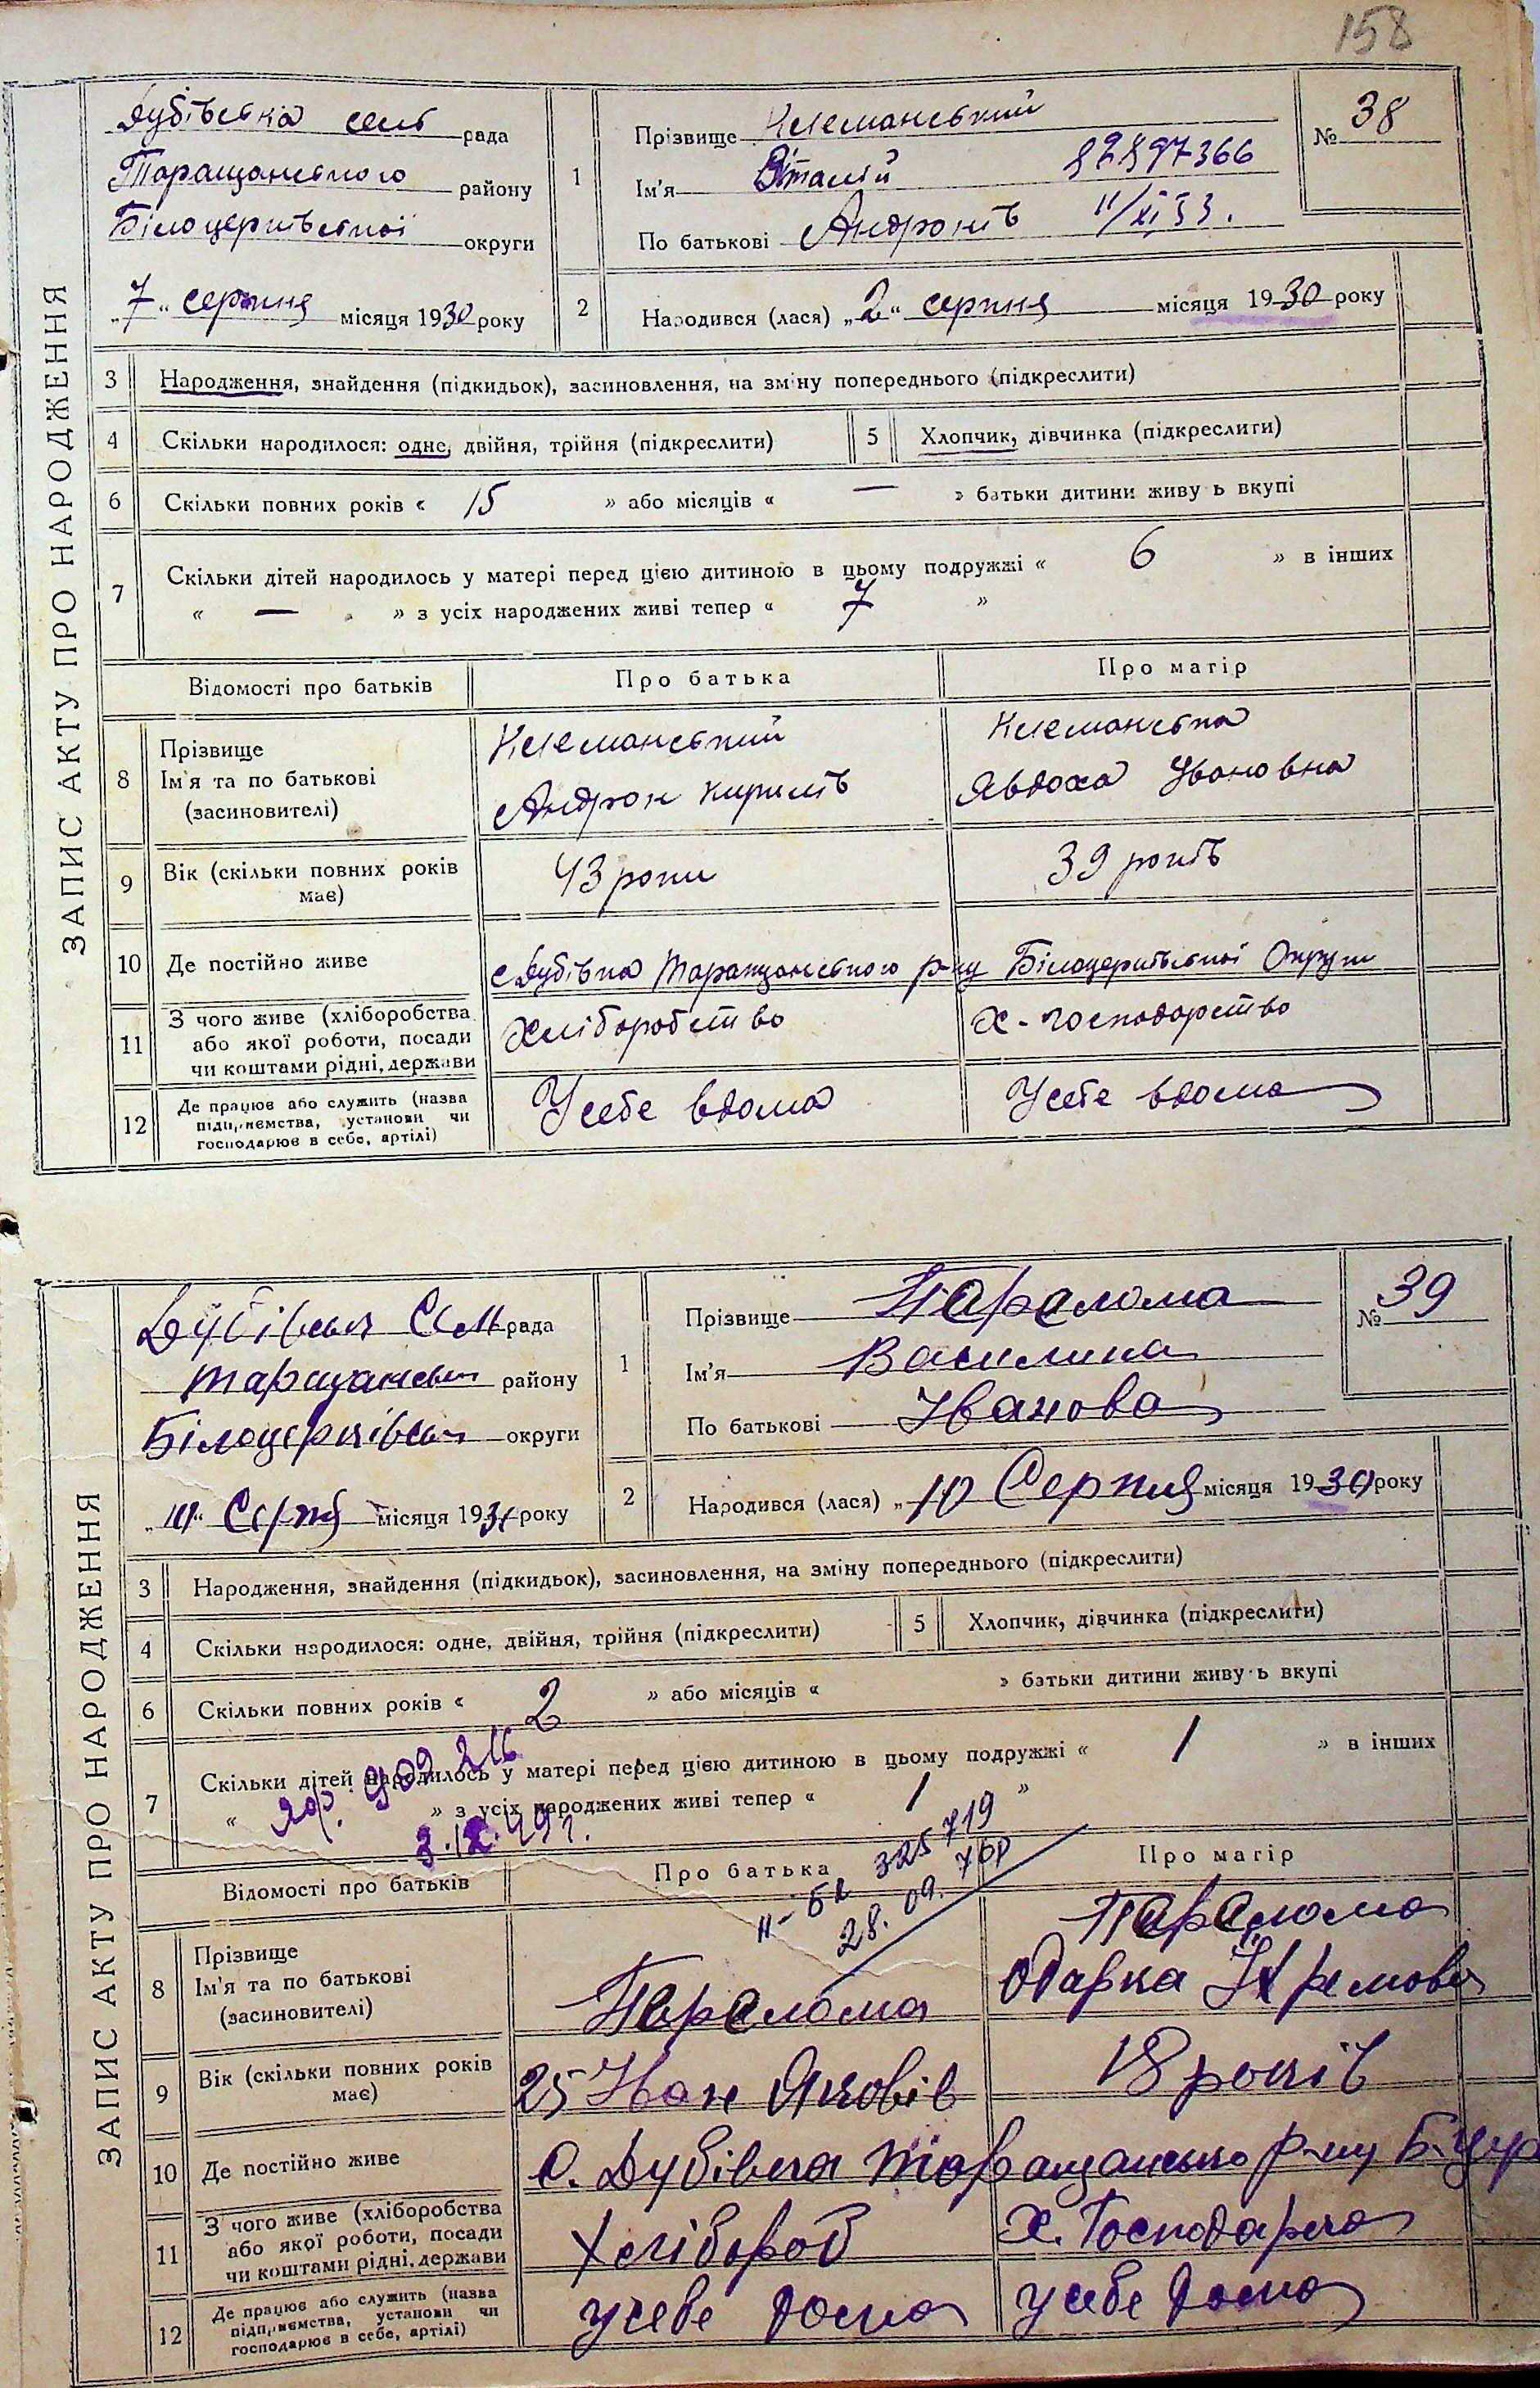 158
ЗАПИС АКТУ ПРО НАРОДЖЕННЯ
Дубівська сель рада
Таращанського району
Білоцерківської округи
„7“ серпня місяця 1930 року
1
Прізвище Клеманський
Ім'я Віталій 82897366
По батькові Андронів 11/XI 53.
№ 38
2
Народився (лася) „2“ серпня місяця 1930 року
3 Народження, знайдення (підкидьок), засиновлення, на зміну попереднього (підкреслити)
4 Скільки народилося: одне, двійня, трійня (підкреслити) 5 Хлопчик, дівчинка (підкреслити)
6 Скільки повних років « 15 » або місяців « — » батьки дитини живуть вкупі
7 Скільки дітей народилось у матері перед цією дитиною в цьому подружжі « 6 » в інших
« — » з усіх народжених живі тепер « 7 »
Відомості про батьків Про батька Про матір
8 Прізвище Клеманський Клеманська
Ім'я та по батькові Андрон Кирилів Явдоха Івановна
(засиновителі)
9 Вік (скільки повних років має) 43 роки 39 років
10 Де постійно живе с Дубівка Таращанського р-ну Білоцерківської Округи
11 З чого живе (хліборобства або якої роботи, посади чи коштами рідні, держави Хліборобство Х-господарство
12 Де працює або служить (назва підприємства, установи чи господарює в себе, артілі) У себе вдома У себе вдома
ЗАПИС АКТУ ПРО НАРОДЖЕННЯ
Дубівська Сіл рада
Таращанськ району
Білоцерківськ округи
місяця 193 року
1
Прізвище Паралома
Ім'я Василина
По батькові Іванова
№ 39
2
Народився (лася) „10 Серпня місяця 1930 року
3 Народження, знайдення (підкидьок), засиновлення, на зміну попереднього (підкреслити)
4 Скільки народилося: одне, двійня, трійня (підкреслити) 5 Хлопчик, дівчинка (підкреслити)
6 Скільки повних років « 2 » або місяців « » батьки дитини живуть вкупі
7 Скільки дітей народилось у матері перед цією дитиною в цьому подружжі « 1 » в інших
« » з усіх народжених живі тепер « 1 »
909 216
49 г.
325719
28. 09.
Відомості про батьків Про батька Про матір
8 Прізвище Паралома Паралома
Ім'я та по батькові Одарка
(засиновителі)
9 Вік (скільки повних років має) 25 Іван Яковів 18 років
10 Де постійно живе с. Дубівка Таращансько р-ну Б-Цер
11 З чого живе (хліборобства або якої роботи, посади чи коштами рідні, держави Хлібороб Х. Господарка
12 Де працює або служить (назва підприємства, установи чи господарює в себе, артілі) у себе дома у себе дома